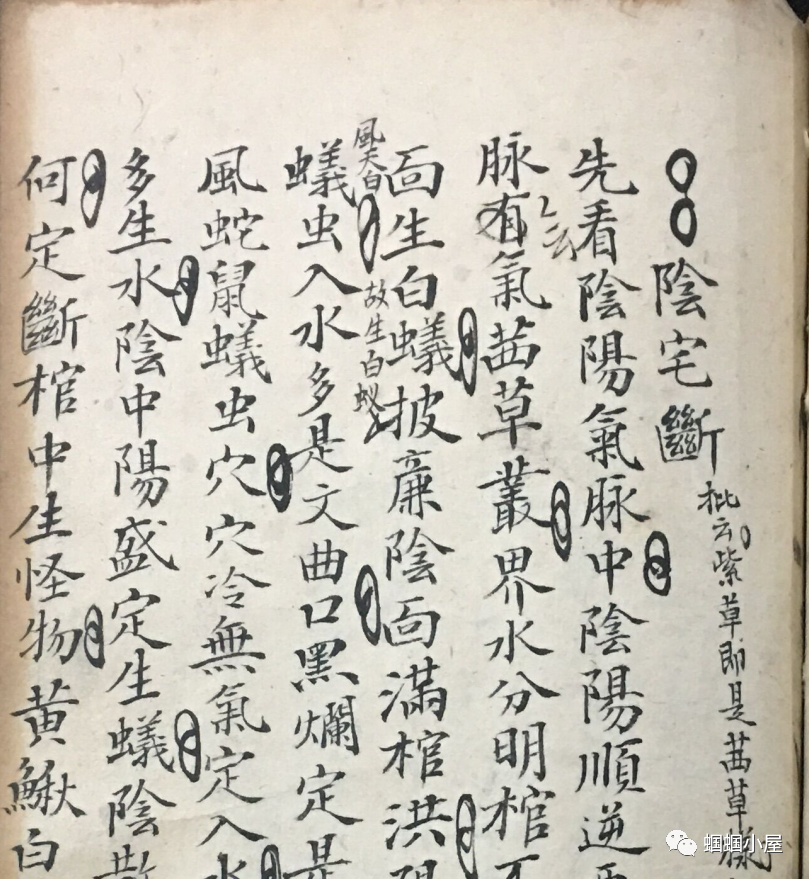 陰宅斷 批云紫草即是茜草
先看陰陽氣脉中陰陽順逆
脉有氣茜草叢界水分明棺
乙云
面生白蟻披廉陰面滿棺洪
風大白
故生白蚁
蟻虫入水多是文曲口黑爛定是
風蛇鼠蟻虫穴穴冷無氣定入水
多生水陰中陽盛定生蟻陰
何定斷棺中生怪物黄鰍白
蝈蝈小屋